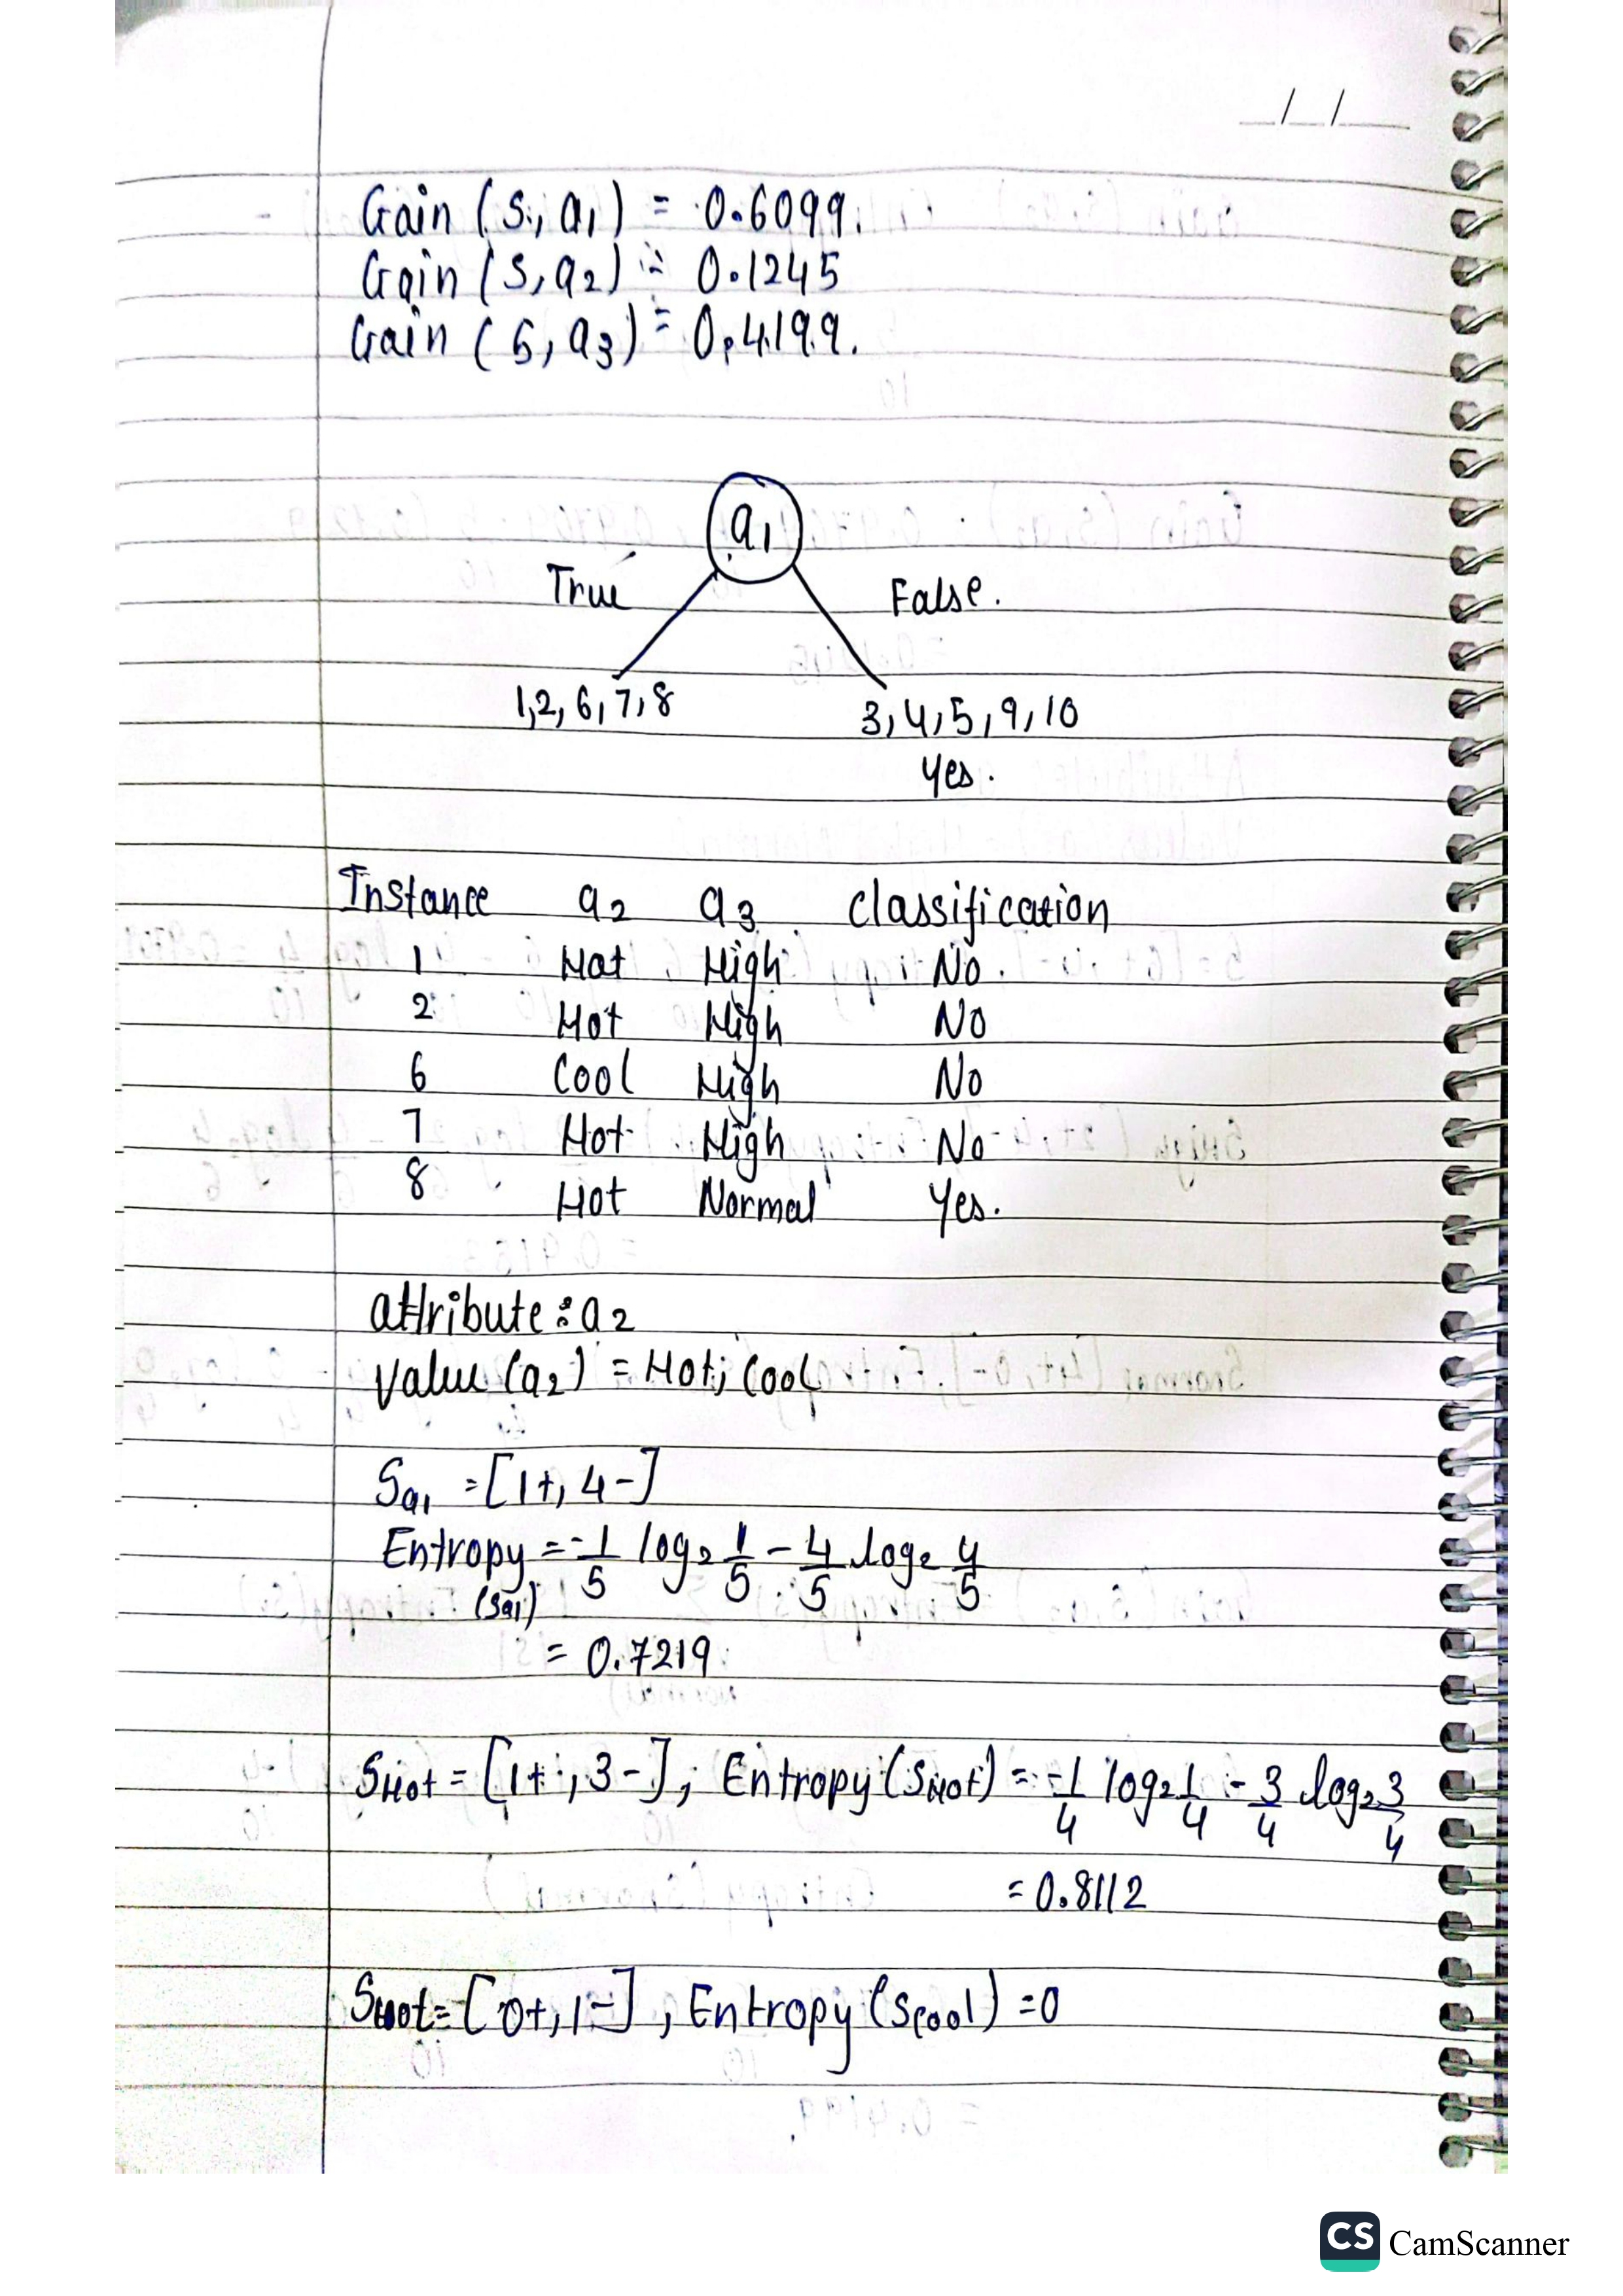 _/_/_
Gain (S, a1) = 0.6099.
Gain (S, a2) = 0.1245
Gain (S, a3) = 0.4199.
a1
True False.
1,2,6,7,8 3,4,5,9,10
Yes.
Instance a2 a3 classification
1 Hot High No.
2 Hot High No
6 Cool High No
7 Hot High No
8 Hot Normal Yes.
attribute : a2
Value (a2) = Hot, Cool
Sa1 = [1+, 4-]
Entropy (Sa1) = -1/5 log2 1/5 - 4/5 log2 4/5
= 0.7219
SHot = [1+, 3-], Entropy (SHot) = -1/4 log2 1/4 - 3/4 log2 3/4
= 0.8112
SHot = [0+, 1-], Entropy (Scool) = 0
CS CamScanner